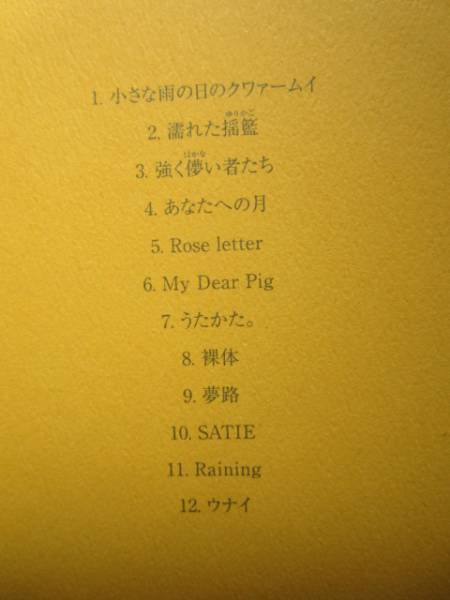 1. 小さな雨の日のクワァームイ
ゆりかご
2. 濡れた揺籃
はかな
3. 強く儚い者たち
4. あなたへの月
5. Rose letter
6. My Dear Pig
7. うたかた。
8. 裸体
9. 夢路
10. SATIE
11. Raining
12. ウナイ